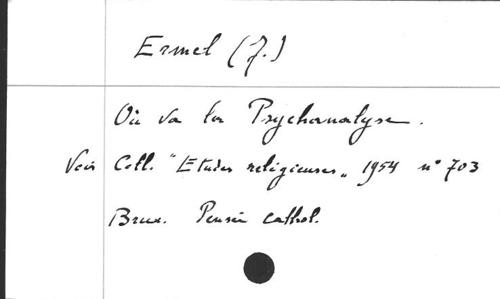 Ermel (J.)
Où va la Psychanalyse.
Voir Coll. "Etudes religieuses" 1954 n° 703
Brux. Pensée cathol.